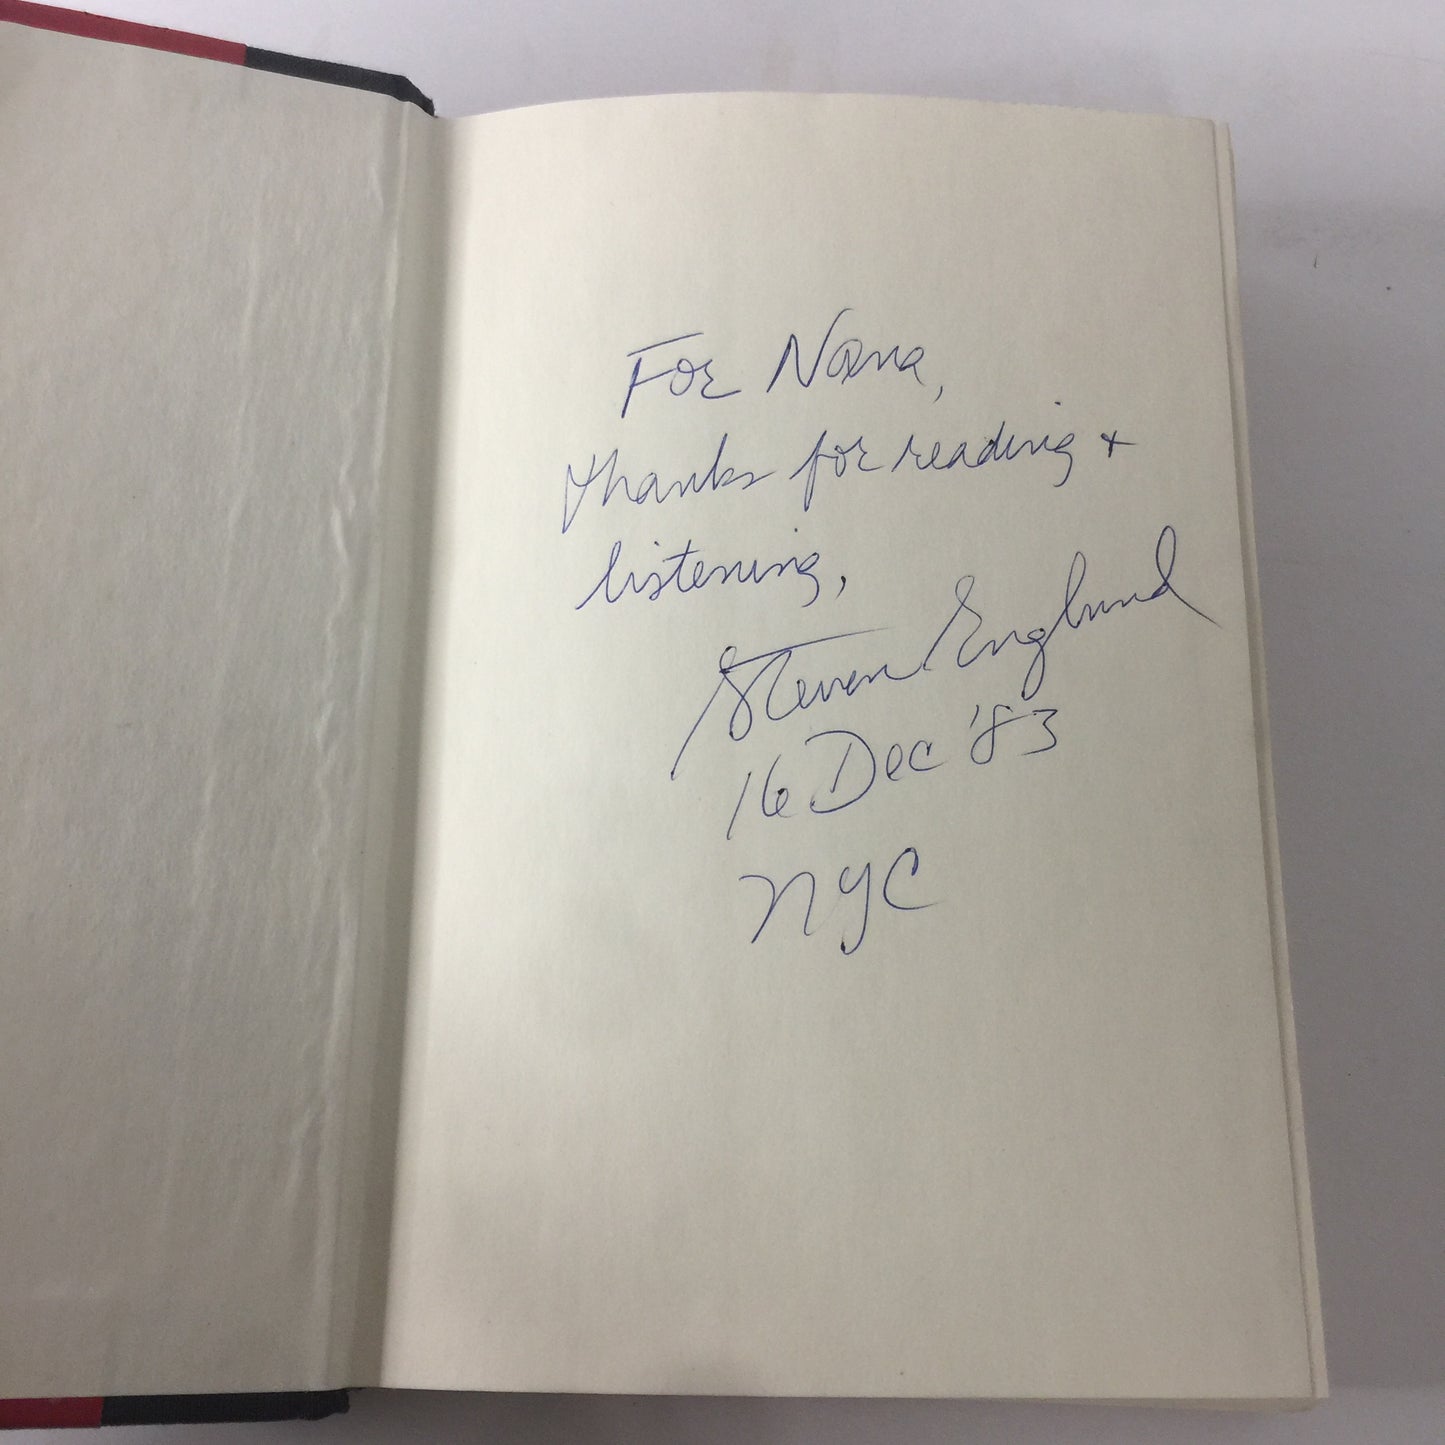 For Nana,
thanks for reading +
listening,
Steven Englund
16 Dec '83
NYC